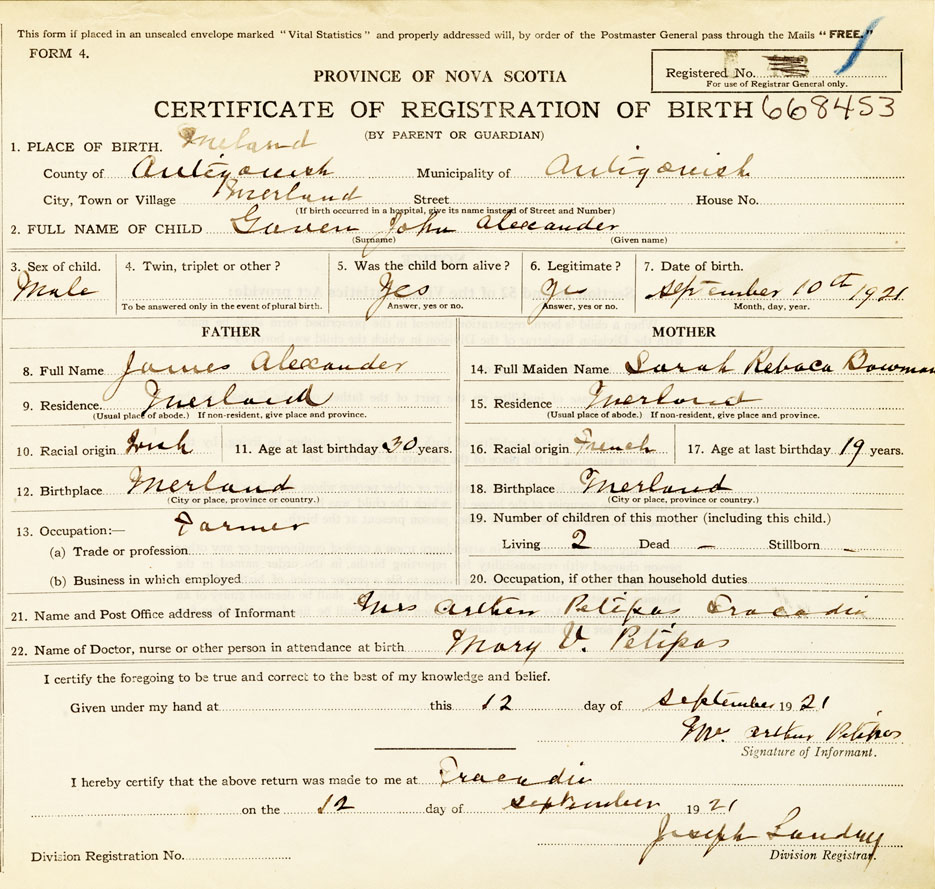 This form if placed in an unsealed envelope marked "Vital Statistics" and properly addressed will, by order of the Postmaster General pass through the Mails "FREE."
FORM 4.
Registered No.
For use of Registrar General only.
PROVINCE OF NOVA SCOTIA
CERTIFICATE OF REGISTRATION OF BIRTH 668453
(BY PARENT OR GUARDIAN)
1. PLACE OF BIRTH. Merland
County of Antigonish Municipality of Antigonish
City, Town or Village Merland Street House No.
(If birth occurred in a hospital, give its name instead of Street and Number)
2. FULL NAME OF CHILD Gaven John Alexander
(Surname) (Given name)
3. Sex of child. 4. Twin, triplet or other? 5. Was the child born alive? 6. Legitimate? 7. Date of birth.
Male Yes Yes September 10th 1921
To be answered only in the event of plural birth. Answer, yes or no. Answer, yes or no. Month, day, year.
FATHER MOTHER
8. Full Name James Alexander 14. Full Maiden Name Sarah Rebaca Bowman
9. Residence. Merland 15. Residence Merland
(Usual place of abode.) If non-resident, give place and province. (Usual place of abode.) If non-resident, give place and province.
10. Racial origin Irish 11. Age at last birthday 30 years. 16. Racial origin French 17. Age at last birthday 19 years.
12. Birthplace Merland 18. Birthplace Merland
(City or place, province or country.) (City or place, province or country.)
13. Occupation:— Farmer 19. Number of children of this mother (including this child.)
(a) Trade or profession Living 2 Dead – Stillborn –
(b) Business in which employed 20. Occupation, if other than household duties
21. Name and Post Office address of Informant Mrs Arthur Petipas Tracadie
22. Name of Doctor, nurse or other person in attendance at birth Mary V. Petipas
I certify the foregoing to be true and correct to the best of my knowledge and belief.
Given under my hand at this 12 day of September 1921
Mrs. Arthur Petipas
Signature of Informant.
I hereby certify that the above return was made to me at Tracadie
on the 12 day of September 1921
Joseph Landry
Division Registration No. Division Registrar.